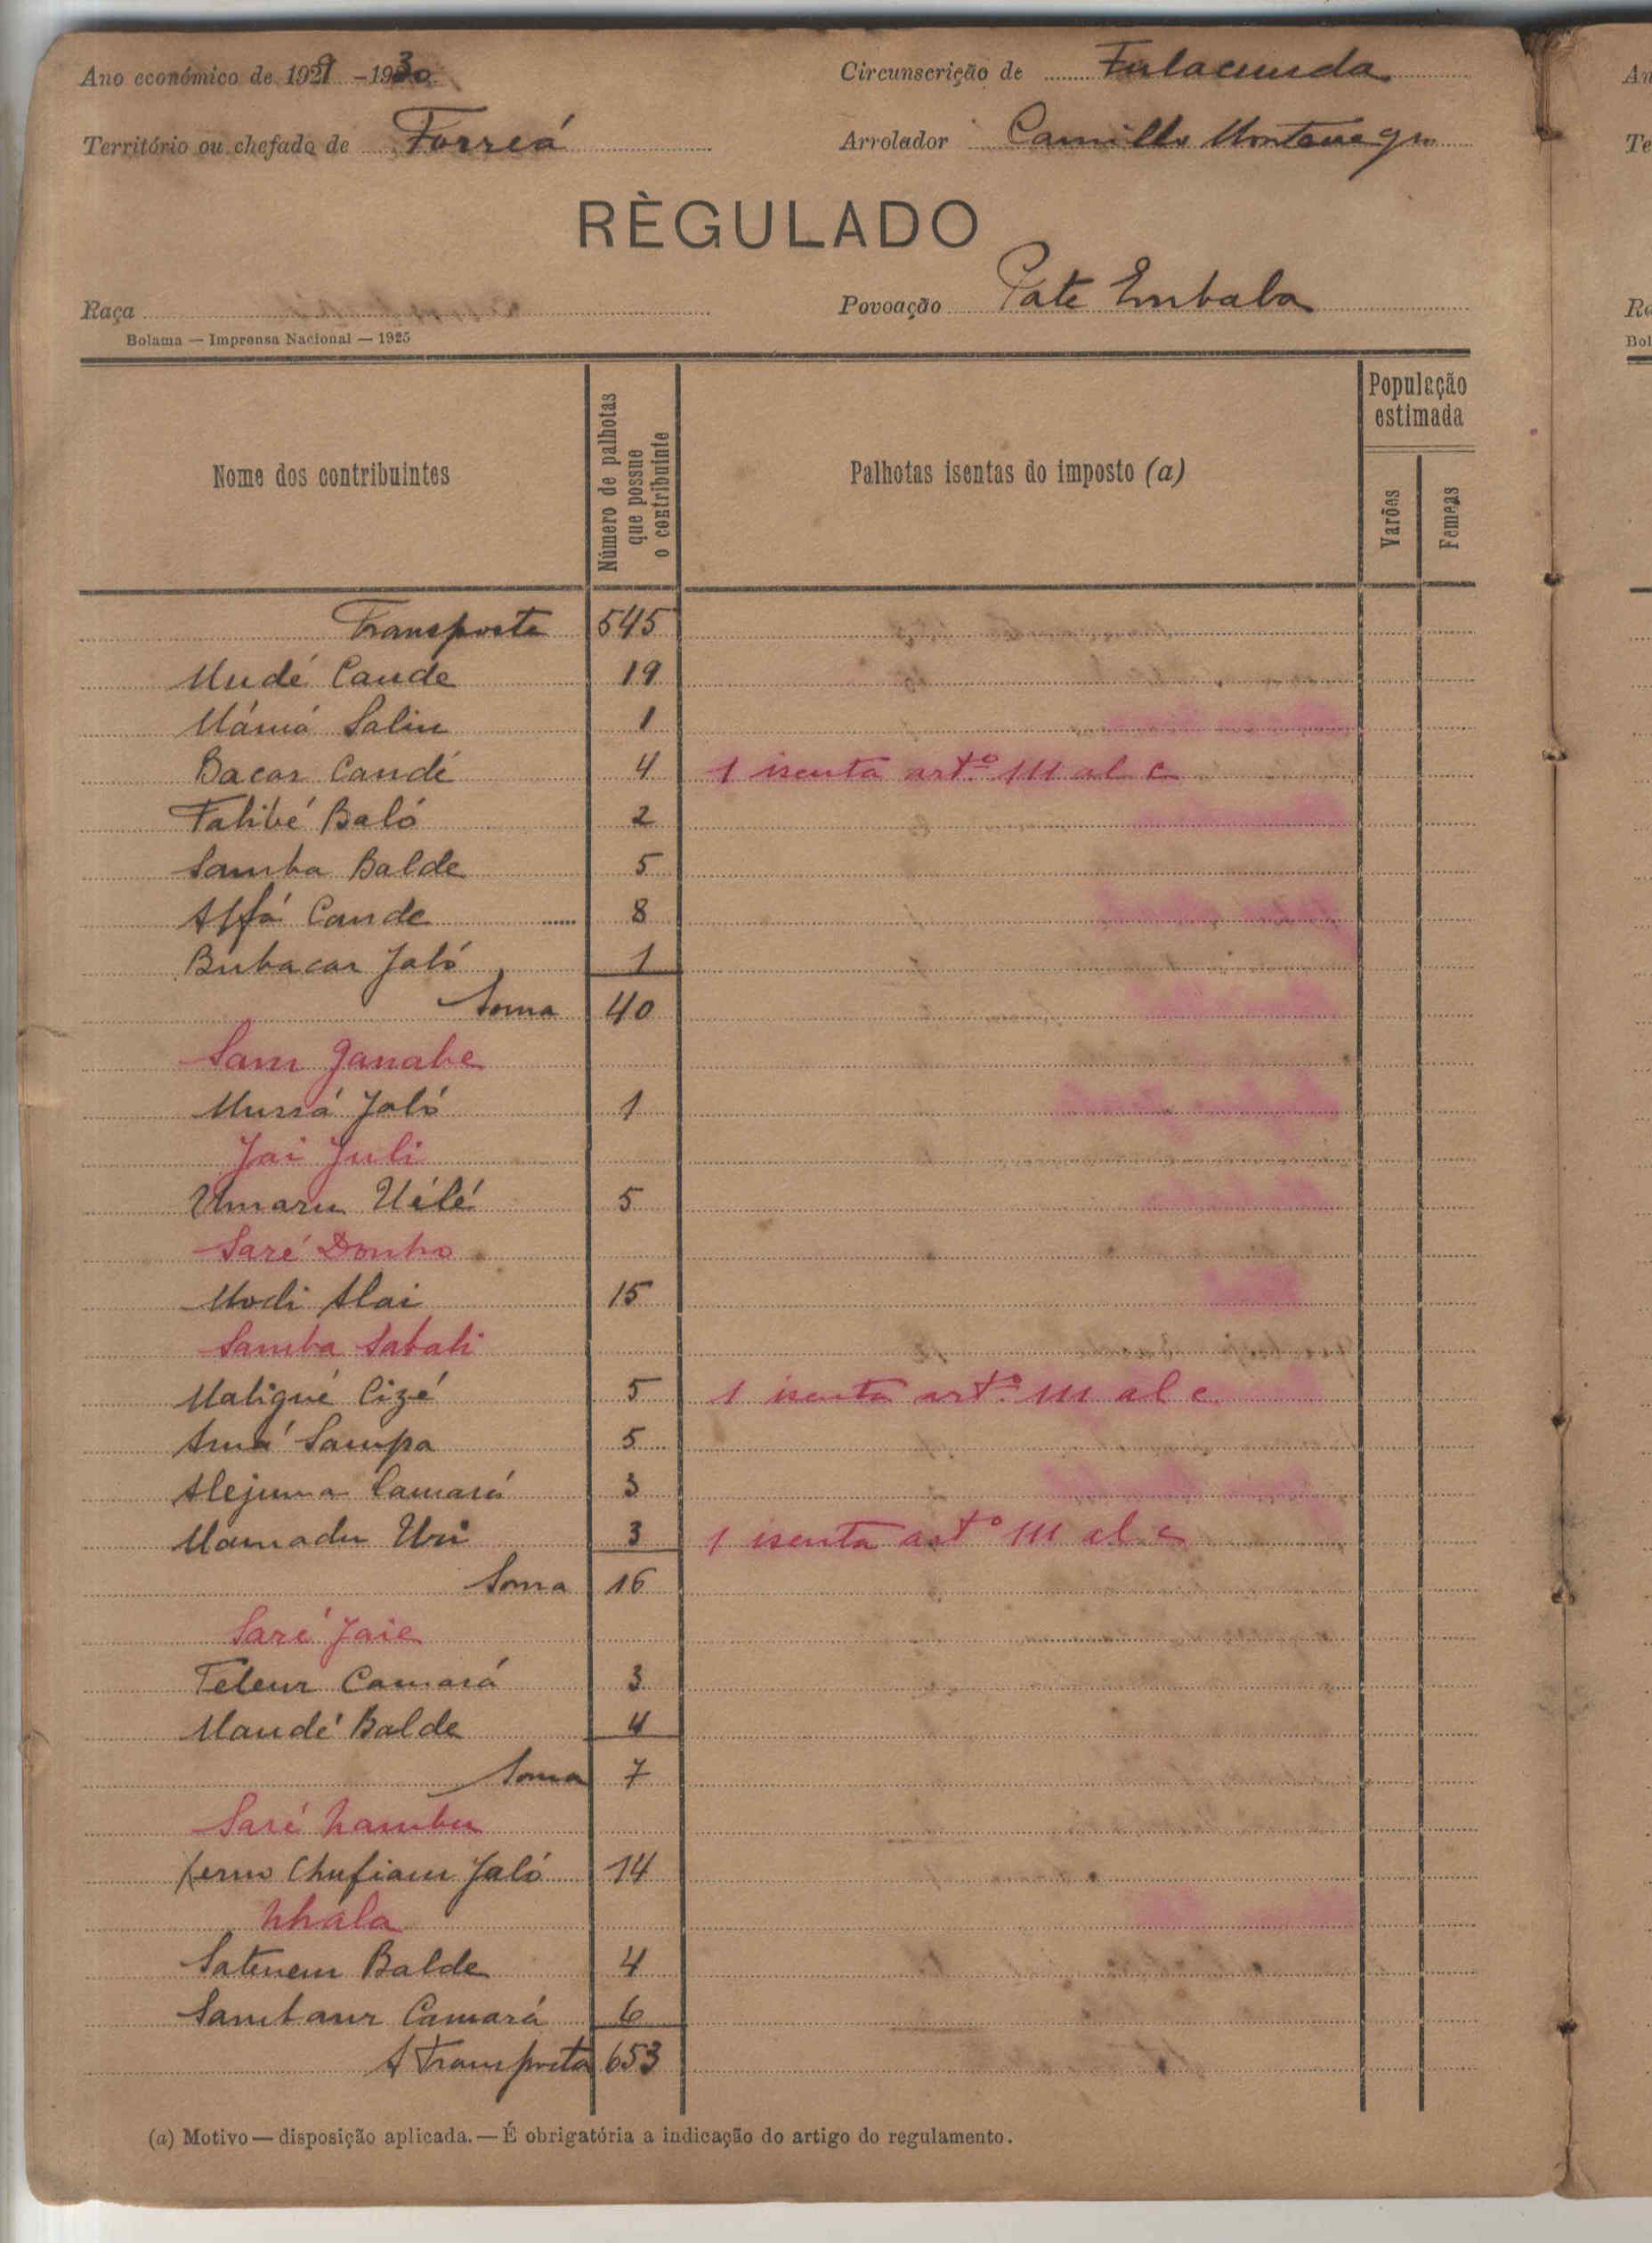 Ano económico de 1929 - 1930
Circunscrição de Fulacunda
Território ou chefado de Forreá
Arrolador Camillo Montenegro
RÈGULADO
Raça
Povoação Pate Embalo
Bolama — Imprensa Nacional — 1925
Nome dos contribuintes
Número de palhotas que possue o contribuinte
Palhotas isentas do imposto (a)
População estimada
Varões
Femeas
Transporte 545
Mudé Cande 19
Mámá Saliu 1
Bacar Candé 4 1 isenta artº 111 al c
Falibé Baló 2
Samba Balde 5
Alfá Cande 8
Bubacar Jaló 1
Soma 40
Sam Janabe
Mussá Jaló 1
Jai Juli
Umaru Uélé 5
Saré Donho
Modi Alai 15
Samba Sabali
Maligué Cizé 5 1 isenta artº 111 al c
Amá Sampa 5
Alejuma Camará 3
Mamadu Uri 3 1 isenta artº 111 al c
Soma 16
Saré Jaie
Teleur Camará 3
Maudé Balde 4
Soma 7
Saré Nambu
Chufiam Jaló 14
Nhala
Satenem Balde 4
Camará 6
A Transportar 653
(a) Motivo — disposição aplicada. — É obrigatória a indicação do artigo do regulamento.
An
Te
Ra
Bol